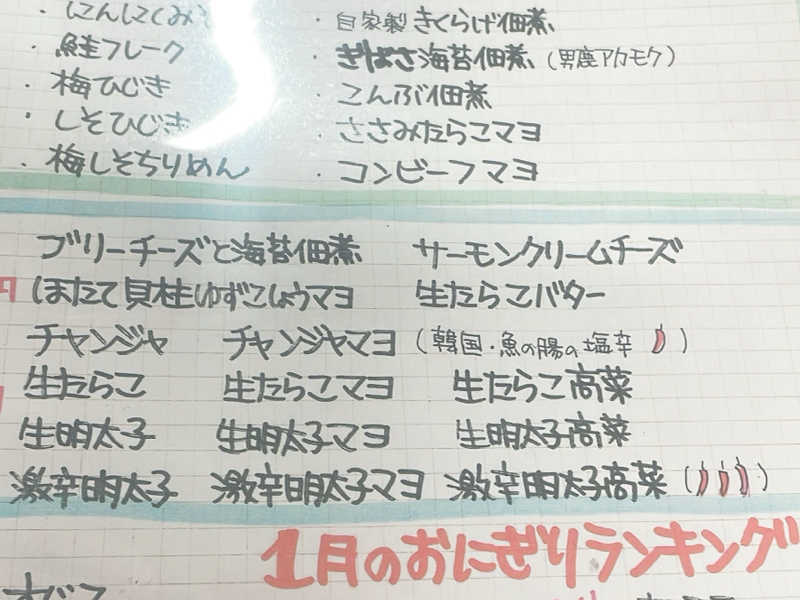 ・にんにくみそ
・鮭フレーク
・梅ひじき
・しそひじき
・梅しそちりめん
・自家製きくらげ佃煮
・ぎばさ海苔佃煮(男鹿アカモク)
・こんぶ佃煮
・ささみたらこマヨ
・コンビーフマヨ
ブリーチーズと海苔佃煮 サーモンクリームチーズ
円 ほたて貝柱ゆずこしょうマヨ 生たらこバター
チャンジャ チャンジャマヨ (韓国・魚の腸の塩辛)
生たらこ 生たらこマヨ 生たらこ高菜
生明太子 生明太子マヨ 生明太子高菜
激辛明太子 激辛明太子マヨ 激辛明太子高菜 ()
1月のおにぎりランキング
すじこ